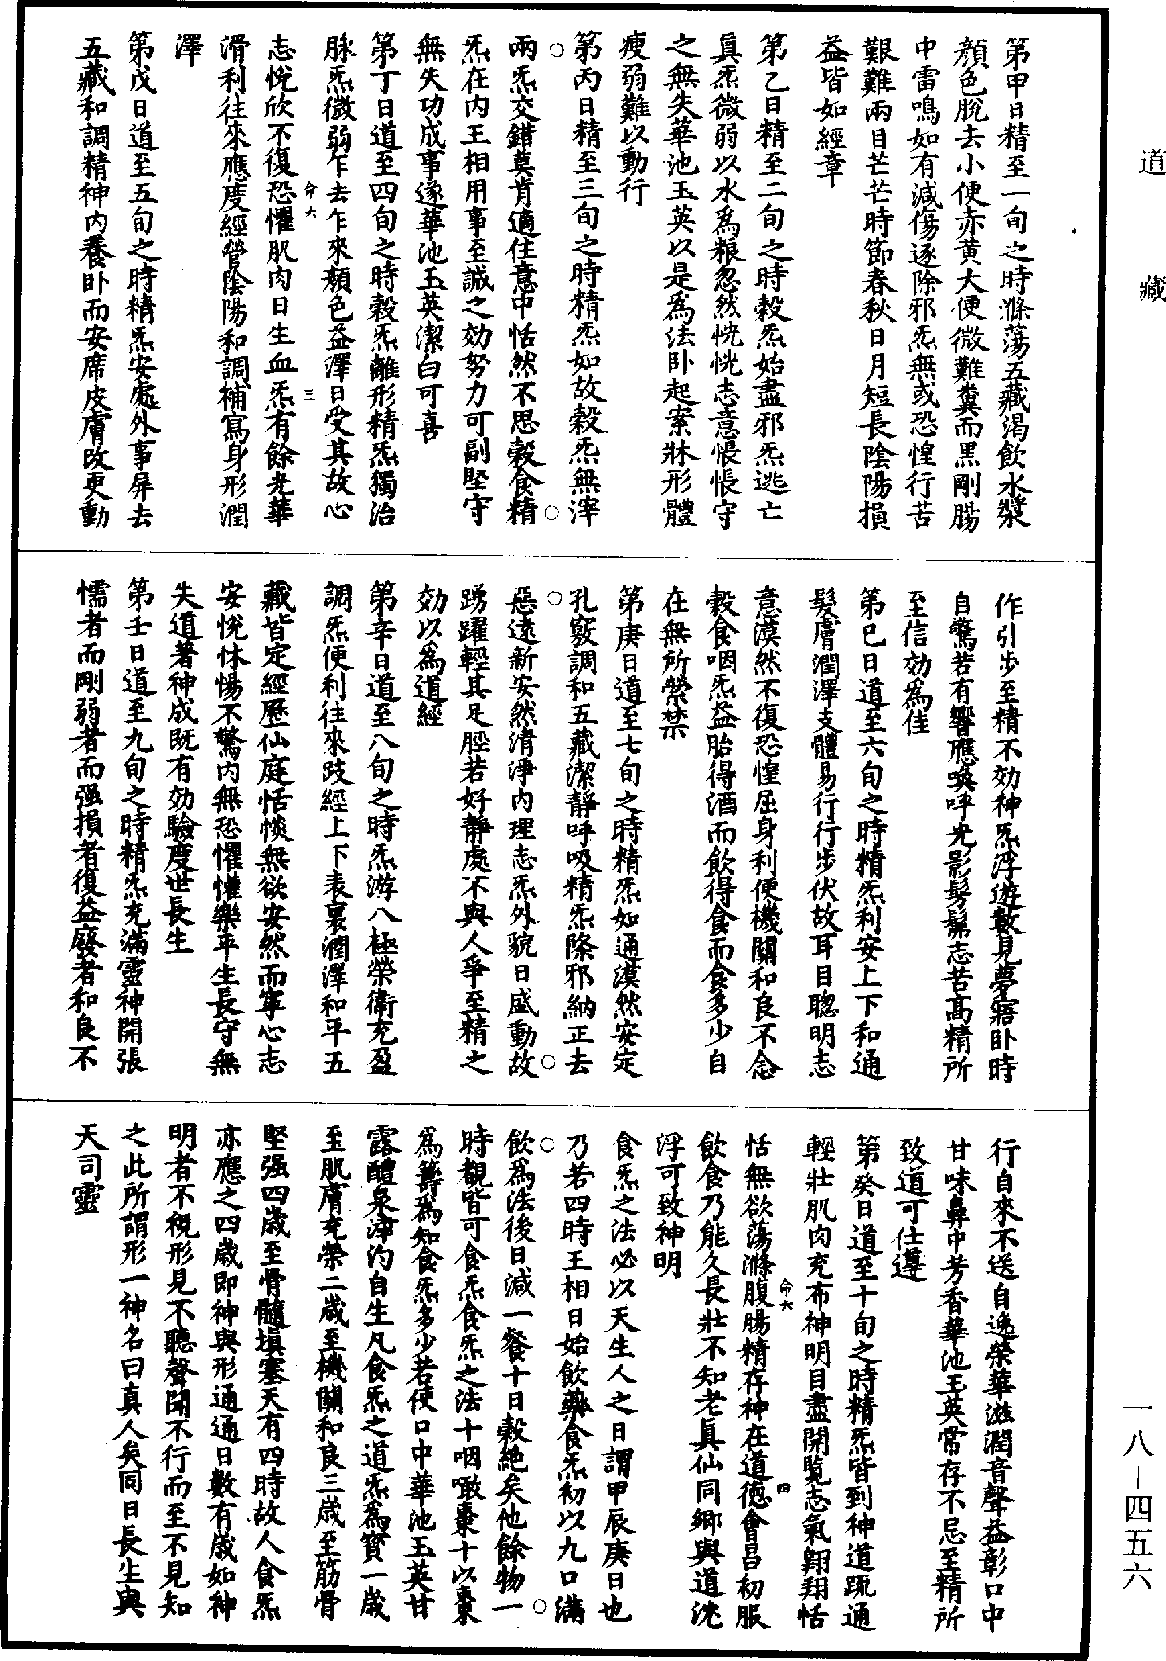 道藏
第甲日精至一旬之時滌蕩五藏渴飲水漿
顏色脫去小便赤黃大便微難糞而黑剛腸
中雷鳴如有減傷逐除邪炁無或恐惶行苦
艱難兩目芒芒時節春秋日月短長陰陽損
益皆如經章
第乙日精至二旬之時穀炁始盡邪炁逃亡
真炁微弱以水為粮忽然恍恍志意悵悵守
之無失華池玉英以是為法卧起案牀形體
瘦弱難以動行
第丙日精至三旬之時精炁如故穀炁無滓
兩炁交錯莫肯適住意中恬然不思穀食精
炁在內王相用事至誠之効努力可副堅守
無失功成事遂華池玉英潔白可喜
第丁日道至四旬之時穀炁離形精炁獨治
脉炁微弱乍去乍來顏色益澤日受其故心
志悅欣不復恐懼肌肉日生血炁有餘光華
滑利往來應度經營陰陽和調補寫身形潤
澤
第戊日道至五旬之時精炁安處外事屏去
五藏和調精神內養卧而安席皮膚改更動
作引步至精不効神炁浮遊數見夢寤卧時
自驚若有響應喚呼光影髣髴志苦高精所
至信効為佳
第巳日道至六旬之時精炁利安上下和通
髮膚潤澤支體易行行步伏故耳目聰明志
意漠然不復恐惶屈身利便機關和良不念
穀食咽炁益胎得酒而飲得食而食多少自
在無所禁禁
第庚日道至七旬之時精炁如通漠然安定
孔竅調和五藏潔靜呼吸精炁除邪納正去
惡遠新安然清淨內理志炁外貌日盛動故
踴躍輕其足脛若好靜處不與人爭至精之
効以為道經
第辛日道至八旬之時炁游八極榮衛充盈
調炁便利往來歧經上下表裏潤澤和平五
藏皆定經歷仙庭恬惔無欲安然而寧心志
安悅怵惕不驚內無恐懼懽樂平生長守無
失道著神成既有効驗度世長生
第壬日道至九旬之時精炁充滿靈神開張
懦者而剛弱者而强損者復益廢者和良不
行自來不送自逸榮華滋潤音聲益彰口中
甘味鼻中芳香華池玉英常存不忌至精所
致道可仕遵
第癸日道至十旬之時精炁皆到神道疏通
輕壯肌肉充布神明目盡開覽志氣翱翔恬
恬無欲蕩滌腹腸精存神在道德會昌初服
飲食乃能久長壯不知老真仙同鄉與道沈
浮可致神明
食炁之法必以天生人之日謂甲辰庚日也
乃若四時王相日始飲藥食炁初以九口滿
飲為法後日減一餐十日穀絶矣他餘物一
時觀皆可食炁食炁之法十咽噉棗十以棗
為籌為知食炁多少若使口中華池玉英甘
露醴泉滓汋自生凡食炁之道炁為寶一歲
至肌膚充榮二歲至機關和良三歲至筋骨
堅强四歲至骨髓填塞天有四時故人食炁
亦應之四歲即神與形通通日數有歲如神
明者不視形見不聽聲聞不行而至不見知
之此所謂形一神名曰真人矣同日長生與
天司靈
命六
三
命六
四
一八—四五六